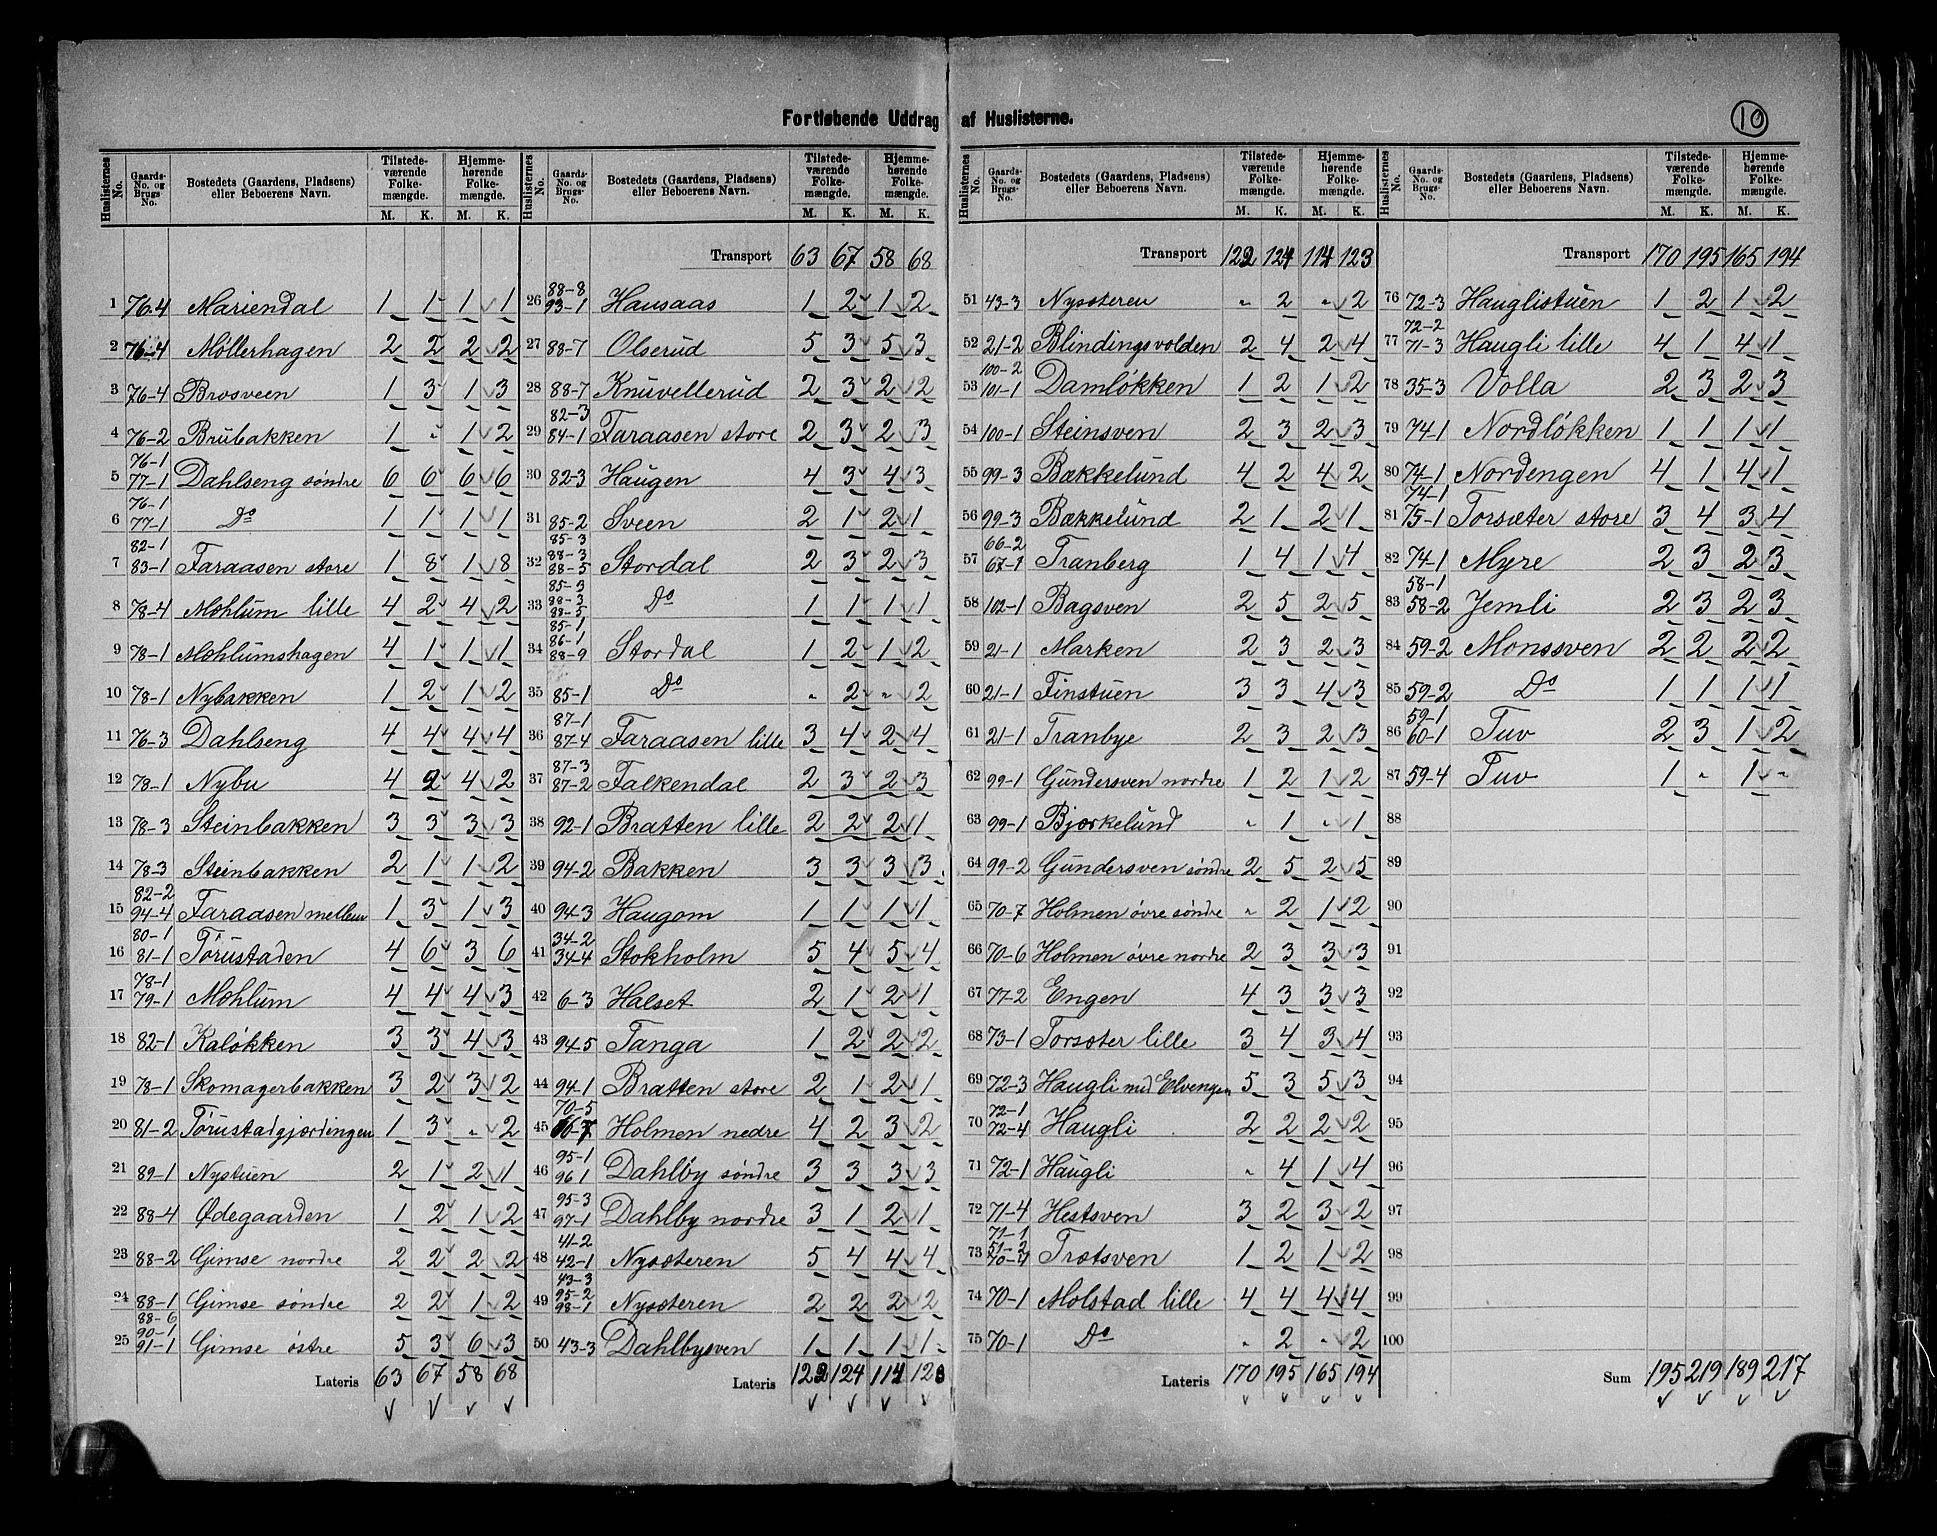 Fortløbende Uddrag af Huslisterne.
10
Huslisternes No. | Gaards-No. og Brugs-No. | Bostedets (Gaardens, Pladsens) eller Beboerens Navn. | Tilstedeværende Folkemængde. M. K. | Hjemmehørende Folkemængde. M. K.
1 76-4 Mariendal 1 1 1 1
2 76-4 Møllerhagen 2 2 2 2
3 76-4 Brosveen 1 3 1 3
4 76-2 Brubakken 1 " 1 2
5 76-1 77-1 Dahlseng søndre 6 6 6 6
6 76-1 77-1 Do 1 1 1 1
7 82-1 83-1 Faraasen store 1 8 1 8
8 78-4 Mæhlum lille 4 2 4 2
9 78-1 Mæhlumshagen 4 1 1 1
10 78-1 Nybakken 1 2 1 2
11 76-3 Dahlseng 4 4 4 4
12 78-1 Nybu 4 2 4 2
13 78-3 Steinbakken 3 3 3 3
14 78-3 Steinbakken 2 1 1 2
15 82-2 94-4 Faraasen mellem 1 3 1 3
16 80-1 81-1 Tørustaden 4 6 3 6
17 78-1 79-1 Mæhlum 4 4 4 3
18 82-1 Kaløkken 3 3 4 3
19 78-1 Skomagerbakken 3 2 3 2
20 81-2 Tørustadgjærdingen 1 3 " 2
21 89-1 Nystuen 2 1 2 1
22 88-4 Ødegaarden 1 2 1 2
23 88-2 Gimse nordre 2 2 2 2
24 88-1 Gimse søndre 2 2 1 2
25 88-6 90-1 91-1 Gimse østre 5 3 6 3
Lateris 63 67 58 68
Huslisternes No. | Gaards-No. og Brugs-No. | Bostedets (Gaardens, Pladsens) eller Beboerens Navn. | Tilstedeværende Folkemængde. M. K. | Hjemmehørende Folkemængde. M. K.
Transport 63 67 58 68
26 88-8 93-1 Hausaas 1 2 1 2
27 88-7 Olserud 5 3 5 3
28 88-7 Knuvellerud 2 3 2 2
29 82-3 84-1 Faraasen store 2 3 2 3
30 82-3 Haugen 4 3 4 3
31 85-2 Sveen 2 1 2 1
32 85-3 88-3 88-5 Stordal 2 3 2 3
33 85-3 88-3 88-5 Do 1 1 1 1
34 85-1 86-1 88-9 Stordal 1 2 1 2
35 85-1 Do " 2 " 2
36 87-1 87-4 Faraasen lille 3 4 2 4
37 87-3 87-2 Falkendal 2 3 2 3
38 92-1 Bratten lille 2 2 2 1
39 94-2 Bakken 3 3 3 3
40 94-3 Haugom 1 1 1 1
41 34-2 34-4 Stokholm 5 4 5 4
42 6-3 Halset 2 1 2 1
43 94-5 Tanga 1 2 2 2
44 94-1 Bratten store 2 1 2 1
45 70-5 Holmen nedre 4 2 3 2
46 95-1 96 1 Dahlby søndre 3 3 3 3
47 95-3 97-1 Dahlby nordre 3 1 2 1
48 41-2 42-1 Nysæteren 5 4 4 4
49 43-3 95-2 98-1 Nysæteren 2 2 2 2
50 43-3 Dahlbysven 1 1 1 1
Lateris 122 124 114 123
Huslisternes No. | Gaards-No. og Brugs-No. | Bostedets (Gaardens, Pladsens) eller Beboerens Navn. | Tilstedeværende Folkemængde. M. K. | Hjemmehørende Folkemængde. M. K.
Transport 122 124 114 123
51 43-3 Nysæteren " 2 " 2
52 21-2 Blindingsvolden 2 4 2 4
53 100-2 101-1 Damløkken 1 2 1 2
54 100-1 Steinsven 2 3 2 3
55 99-3 Bækkelund 4 2 4 2
56 99-3 Bækkelund 2 1 2 1
57 66-2 67-1 Tranberg 1 4 1 4
58 102-1 Bagsven 2 5 2 5
59 21-1 Marken 2 3 2 3
60 21-1 Finstuen 3 3 4 3
61 21-1 Tranbye 2 3 2 3
62 99-1 Gundersven nordre 1 2 1 2
63 99-1 Bjørkelund " 1 " 1
64 99-2 Gundersven søndre 2 5 2 5
65 70-7 Holmen øvre søndre " 2 1 2
66 70-6 Holmen øvre nordre 2 3 3 3
67 77-2 Engen 4 3 3 3
68 73-1 Torsæter lille 3 4 3 4
69 72-3 Haugli med Elvengen 5 3 5 3
70 72-1 72-4 Haugli 2 2 2 2
71 72-1 Haugli " 4 1 4
72 71-4 Hestsven 3 2 3 2
73 71-1 51-2 70-4 Trætsven 1 2 1 2
74 70-1 Molstad lille 4 4 4 4
75 70-1 Do " 2 " 2
Lateris 170 195 165 194
Huslisternes No. | Gaards-No. og Brugs-No. | Bostedets (Gaardens, Pladsens) eller Beboerens Navn. | Tilstedeværende Folkemængde. M. K. | Hjemmehørende Folkemængde. M. K.
Transport 170 195 165 194
76 72-3 Hauglistuen 1 2 1 2
77 72-2 71-3 Haugli lille 4 1 4 1
78 35-3 Volla 2 3 2 3
79 74-1 Nordløkken 1 1 1 1
80 74-1 Nordengen 4 1 4 1
81 74-1 75-1 Torsæter store 3 4 3 4
82 74-1 Myre 2 3 2 3
83 58-1 58-2 Jemli 2 3 2 3
84 59-2 Monssven 2 2 2 2
85 59-2 Do 1 1 1 1
86 59-1 60-1 Tuv 2 3 1 2
87 59-4 Tuv 1 " 1 "
88
89
90
91
92
93
94
95
96
97
98
99
100
Sum 195 219 189 217